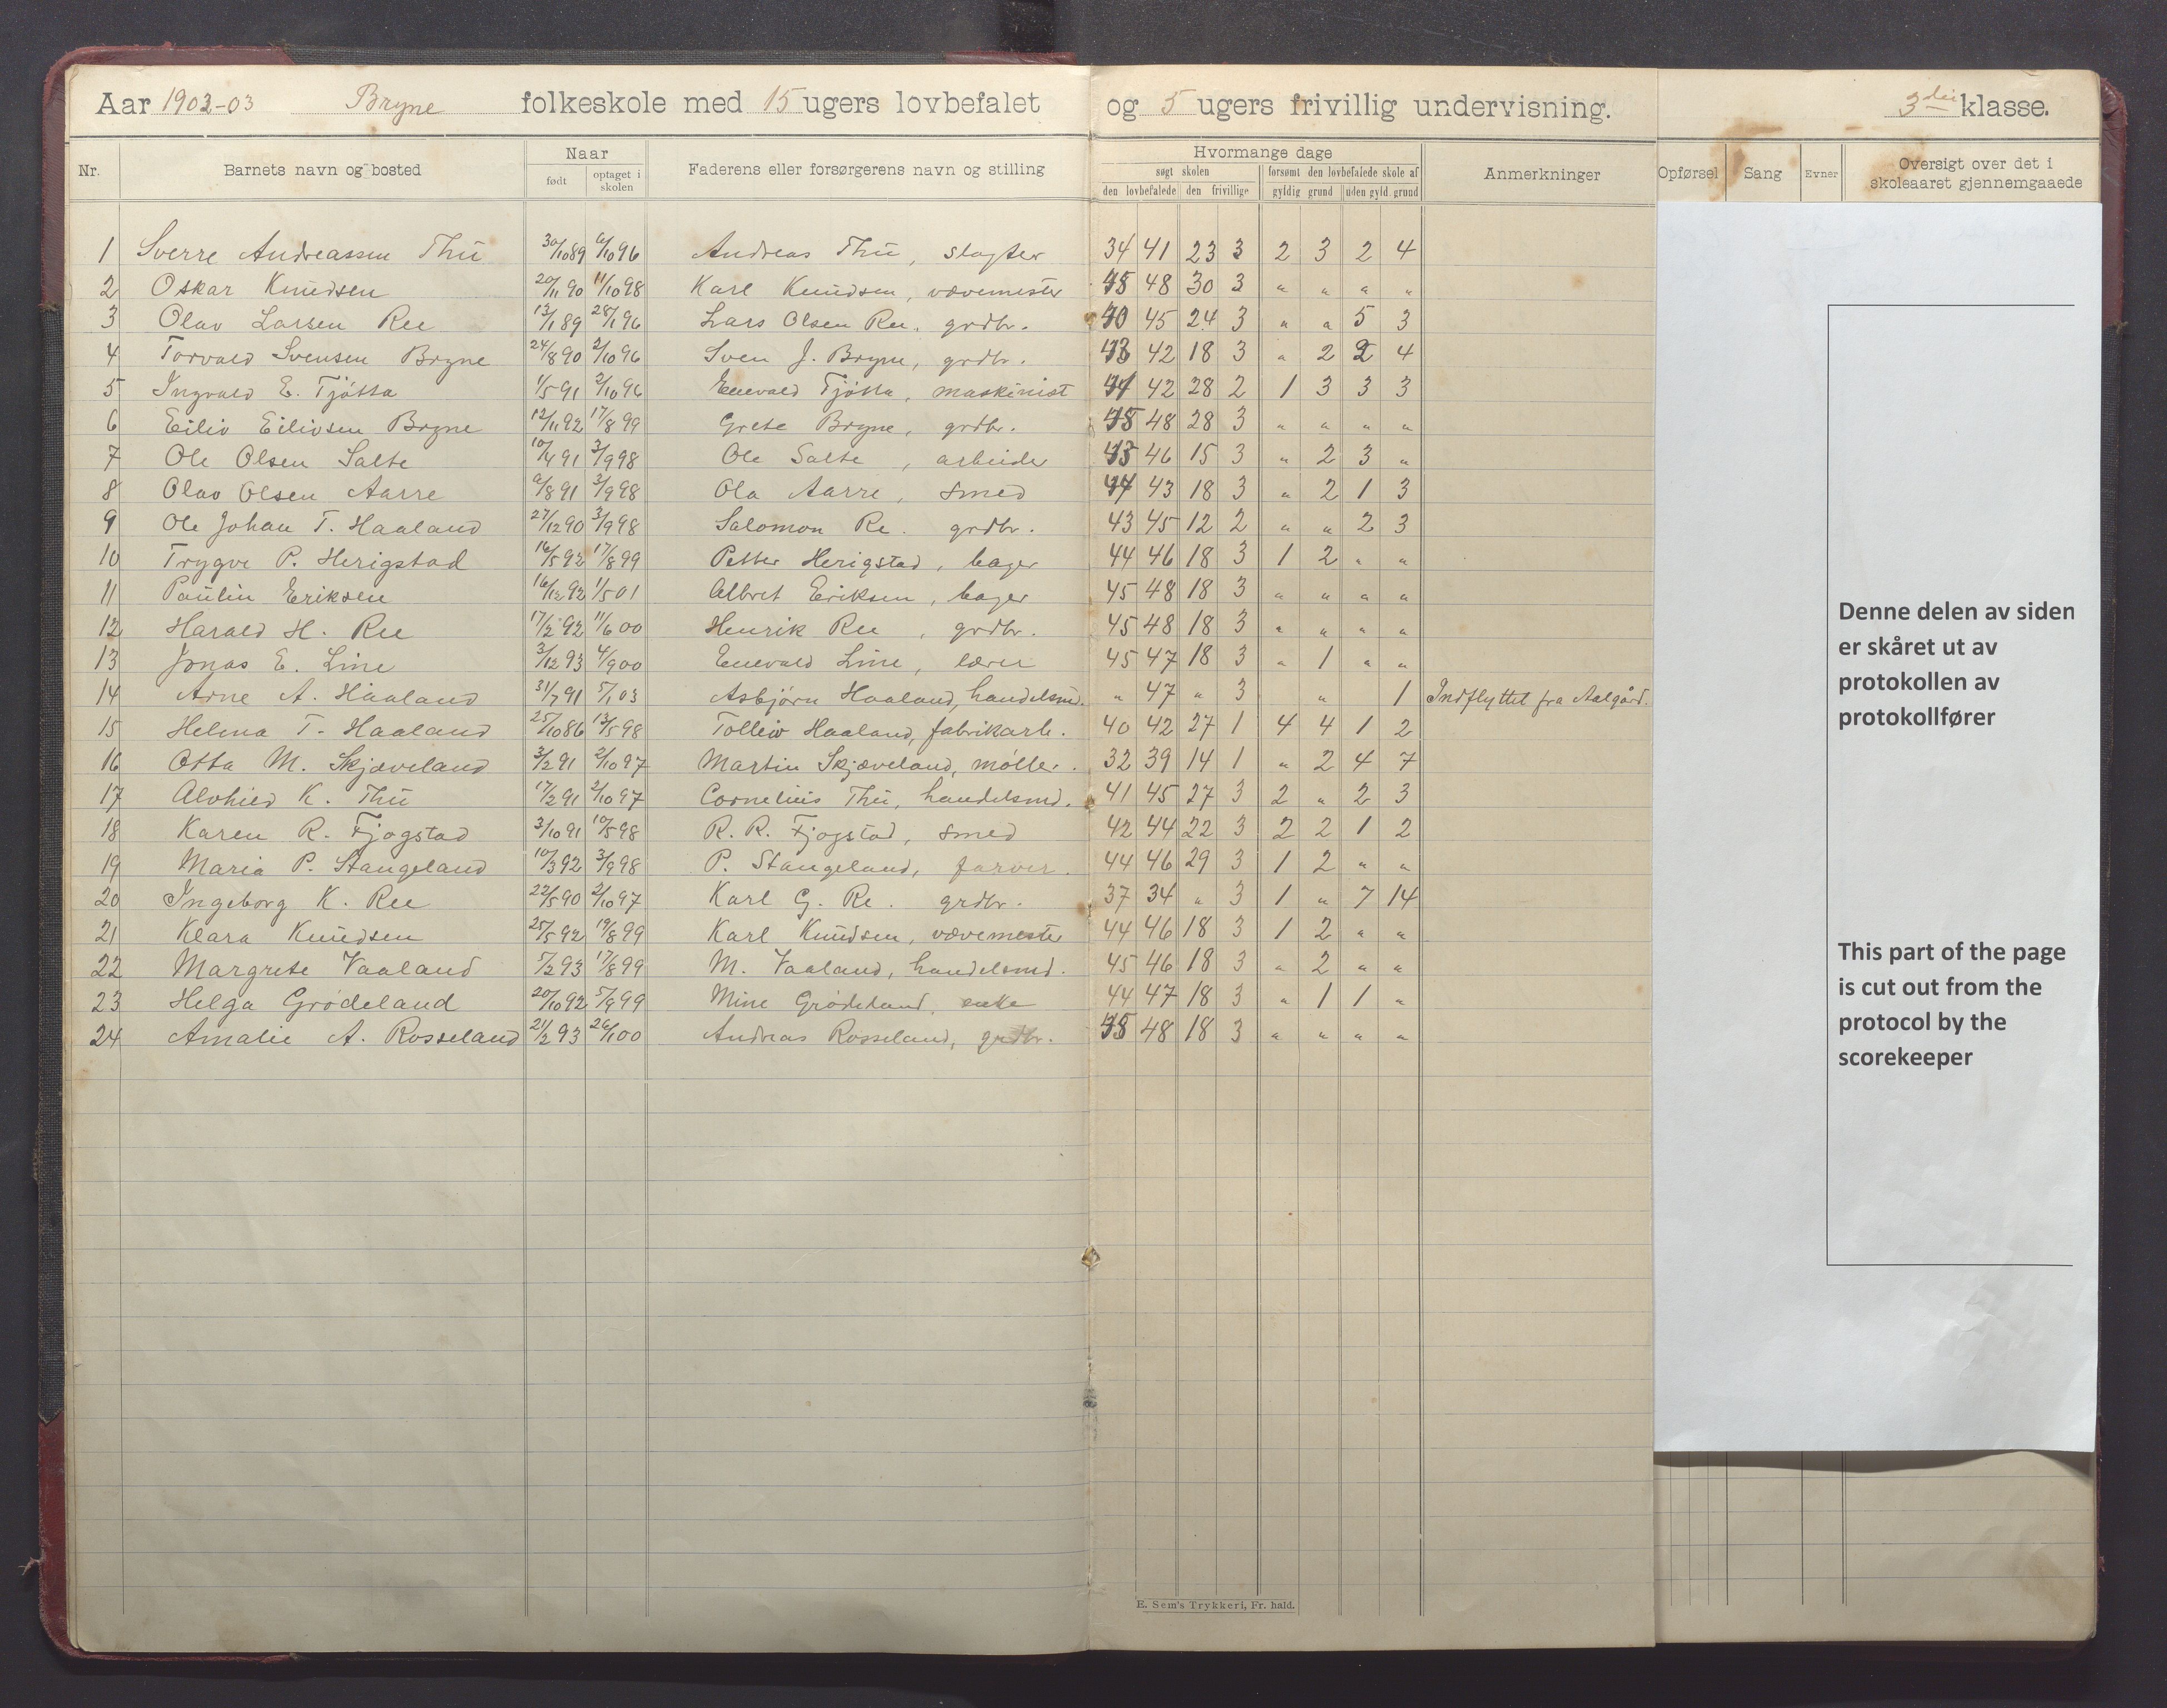 Aar 1902-03 Bryne folkeskole med 15 ugers lovbefalet og 5 ugers frivillig undervisning. 3die klasse.
Nr. Barnets navn og bosted Naar født optaget i skolen Faderens eller forsørgerens navn og stilling Hvormange dage søgt skolen den lovbefalede den frivillige forsømt den lovbefalede skole af gyldig grund uden gyld. grund Anmerkninger Opførsel Sang Evner Oversigt over det i skoleaaret gjennemgaaede
1 Sverre Andreassen Thu 30/10 89 6/10 96 Andreas Thu, slagter 34 41 23 3 2 3 2 4
2 Oskar Knudsen 20/11 90 11/10 98 Karl Knudsen, vævemester 45 48 30 3 " " " "
3 Olav Larsen Ree 13/1 89 28/1 96 Lars Olsen Ree, grdbr. 40 45 24 3 " " 5 3
4 Torvald Svensen Bryne 24/8 90 2/10 96 Sven J. Bryne, grdbr. 43 42 18 3 " 2 2 4
5 Ingvald E. Tjøtta 1/5 91 2/10 96 Enevald Tjøtta, maskinist 41 42 28 2 1 3 3 3
6 Eiliv Eilivsen Bryne 12/11 92 17/8 99 Grete Bryne, grdbr. 45 48 28 3 " " " "
7 Ole Olsen Salte 10/4 91 3/9 98 Ole Salte, arbeider 43 46 15 3 " 2 3 "
8 Olav Olsen Aarre 9/8 91 3/9 98 Ola Aarre, smed 44 43 18 3 " 2 1 3
9 Ole Johan T. Haaland 27/12 90 3/9 98 Salomon Re. grdbr. 43 45 12 2 " " 2 3
10 Trygve P. Herigstad 16/5 92 17/8 99 Petter Herigstad, bager 44 46 18 3 1 2 " "
11 Paulin Eriksen 16/12 92 1/5 01 Albret Eriksen, bager 45 48 18 3 " " " "
12 Harald H. Ree 17/2 92 11/6 00 Henrik Ree, grdbr. 45 48 18 3 " " " "
13 Jonas E. Line 3/12 93 4/9 00 Enevald Line, lærer 45 47 18 3 " 1 " "
14 Arne A. Haaland 31/7 91 5/1 03 Asbjørn Haaland, handelsmd. " 47 " 3 " 1 Indflyttet fra Aalgård.
15 Helena T. Haaland 25/10 86 13/5 98 Tolleiv Haaland, fabrikarb. 40 42 27 1 4 4 1 2
16 Otta M. Skjæveland 3/2 91 2/10 97 Martin Skjæveland, møller. 32 39 14 1 " 2 4 7
17 Alvhied K. Thu 17/2 91 2/10 97 Cornelius Thu, handelsmd. 41 45 27 3 2 " 2 3
18 Karen R. Fjogstad 3/10 91 10/5 98 R. R. Fjogstad, smed 42 44 22 3 2 2 1 2
19 Maria P. Stangeland 10/3 92 3/9 98 P. Stangeland, farver. 44 46 29 3 1 2 " "
20 Ingeborg K. Ree 22/5 90 2/10 97 Karl G. Re. grdbr. 37 34 " 3 1 " 7 14
21 Klara Knudsen 25/5 92 19/8 99 Karl Knudsen, vævemester 44 46 18 3 1 2 " "
22 Margrete Vaaland 5/2 93 17/8 99 M. Vaaland, handelsmd. 45 46 18 3 " 2 " "
23 Helga Grødeland 20/10 92 5/9 99 Mine Grødeland, enke 44 47 18 3 " 1 1 "
24 Amalie A. Rosseland 21/2 93 26/1 00 Andreas Rosseland, grdbr. 45 48 18 3 " " " "
E. Sem's Trykkeri, Fr. hald.
Denne delen av siden
er skåret ut av
protokollen av
protokollfører
This part of the page
is cut out from the
protocol by the
scorekeeper